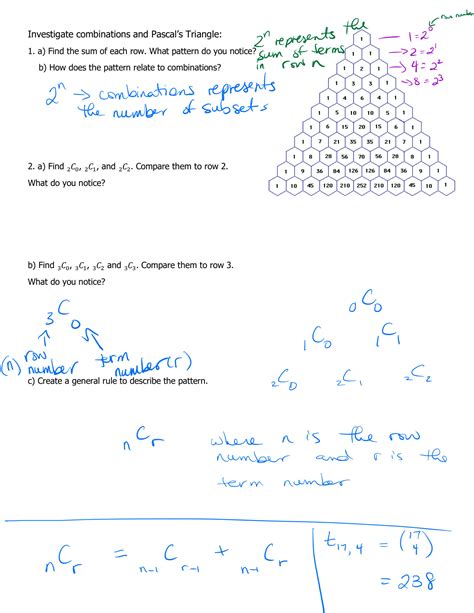 Investigate combinations and Pascal's Triangle:
1. a) Find the sum of each row. What pattern do you notice?
b) How does the pattern relate to combinations?
2ⁿ → combinations represents
the number of subsets
2ⁿ represents the
sum of terms
in row n
row number
→ 1 = 2⁰
→ 2 = 2¹
→ 4 = 2²
→ 8 = 2³
1
1 1
1 2 1
1 3 3 1
1 4 6 4 1
1 5 10 10 5 1
1 6 15 20 15 6 1
1 7 21 35 35 21 7 1
1 8 28 56 70 56 28 8 1
1 9 36 84 126 126 84 36 9 1
1 10 45 120 210 252 210 120 45 10 1
2. a) Find ₂C₀, ₂C₁, and ₂C₂. Compare them to row 2.
What do you notice?
b) Find ₃C₀, ₃C₁, ₃C₂ and ₃C₃. Compare them to row 3.
What do you notice?
₃C₀
(n) row number
term number (r)
₀C₀
₁C₀ ₁C₁
₂C₀ ₂C₁ ₂C₂
c) Create a general rule to describe the pattern.
nCr where n is the row
number and r is the
term number
nCr = n-1Cr-1 + n-1Cr
t₁₇,₄ = (17 4)
= 238